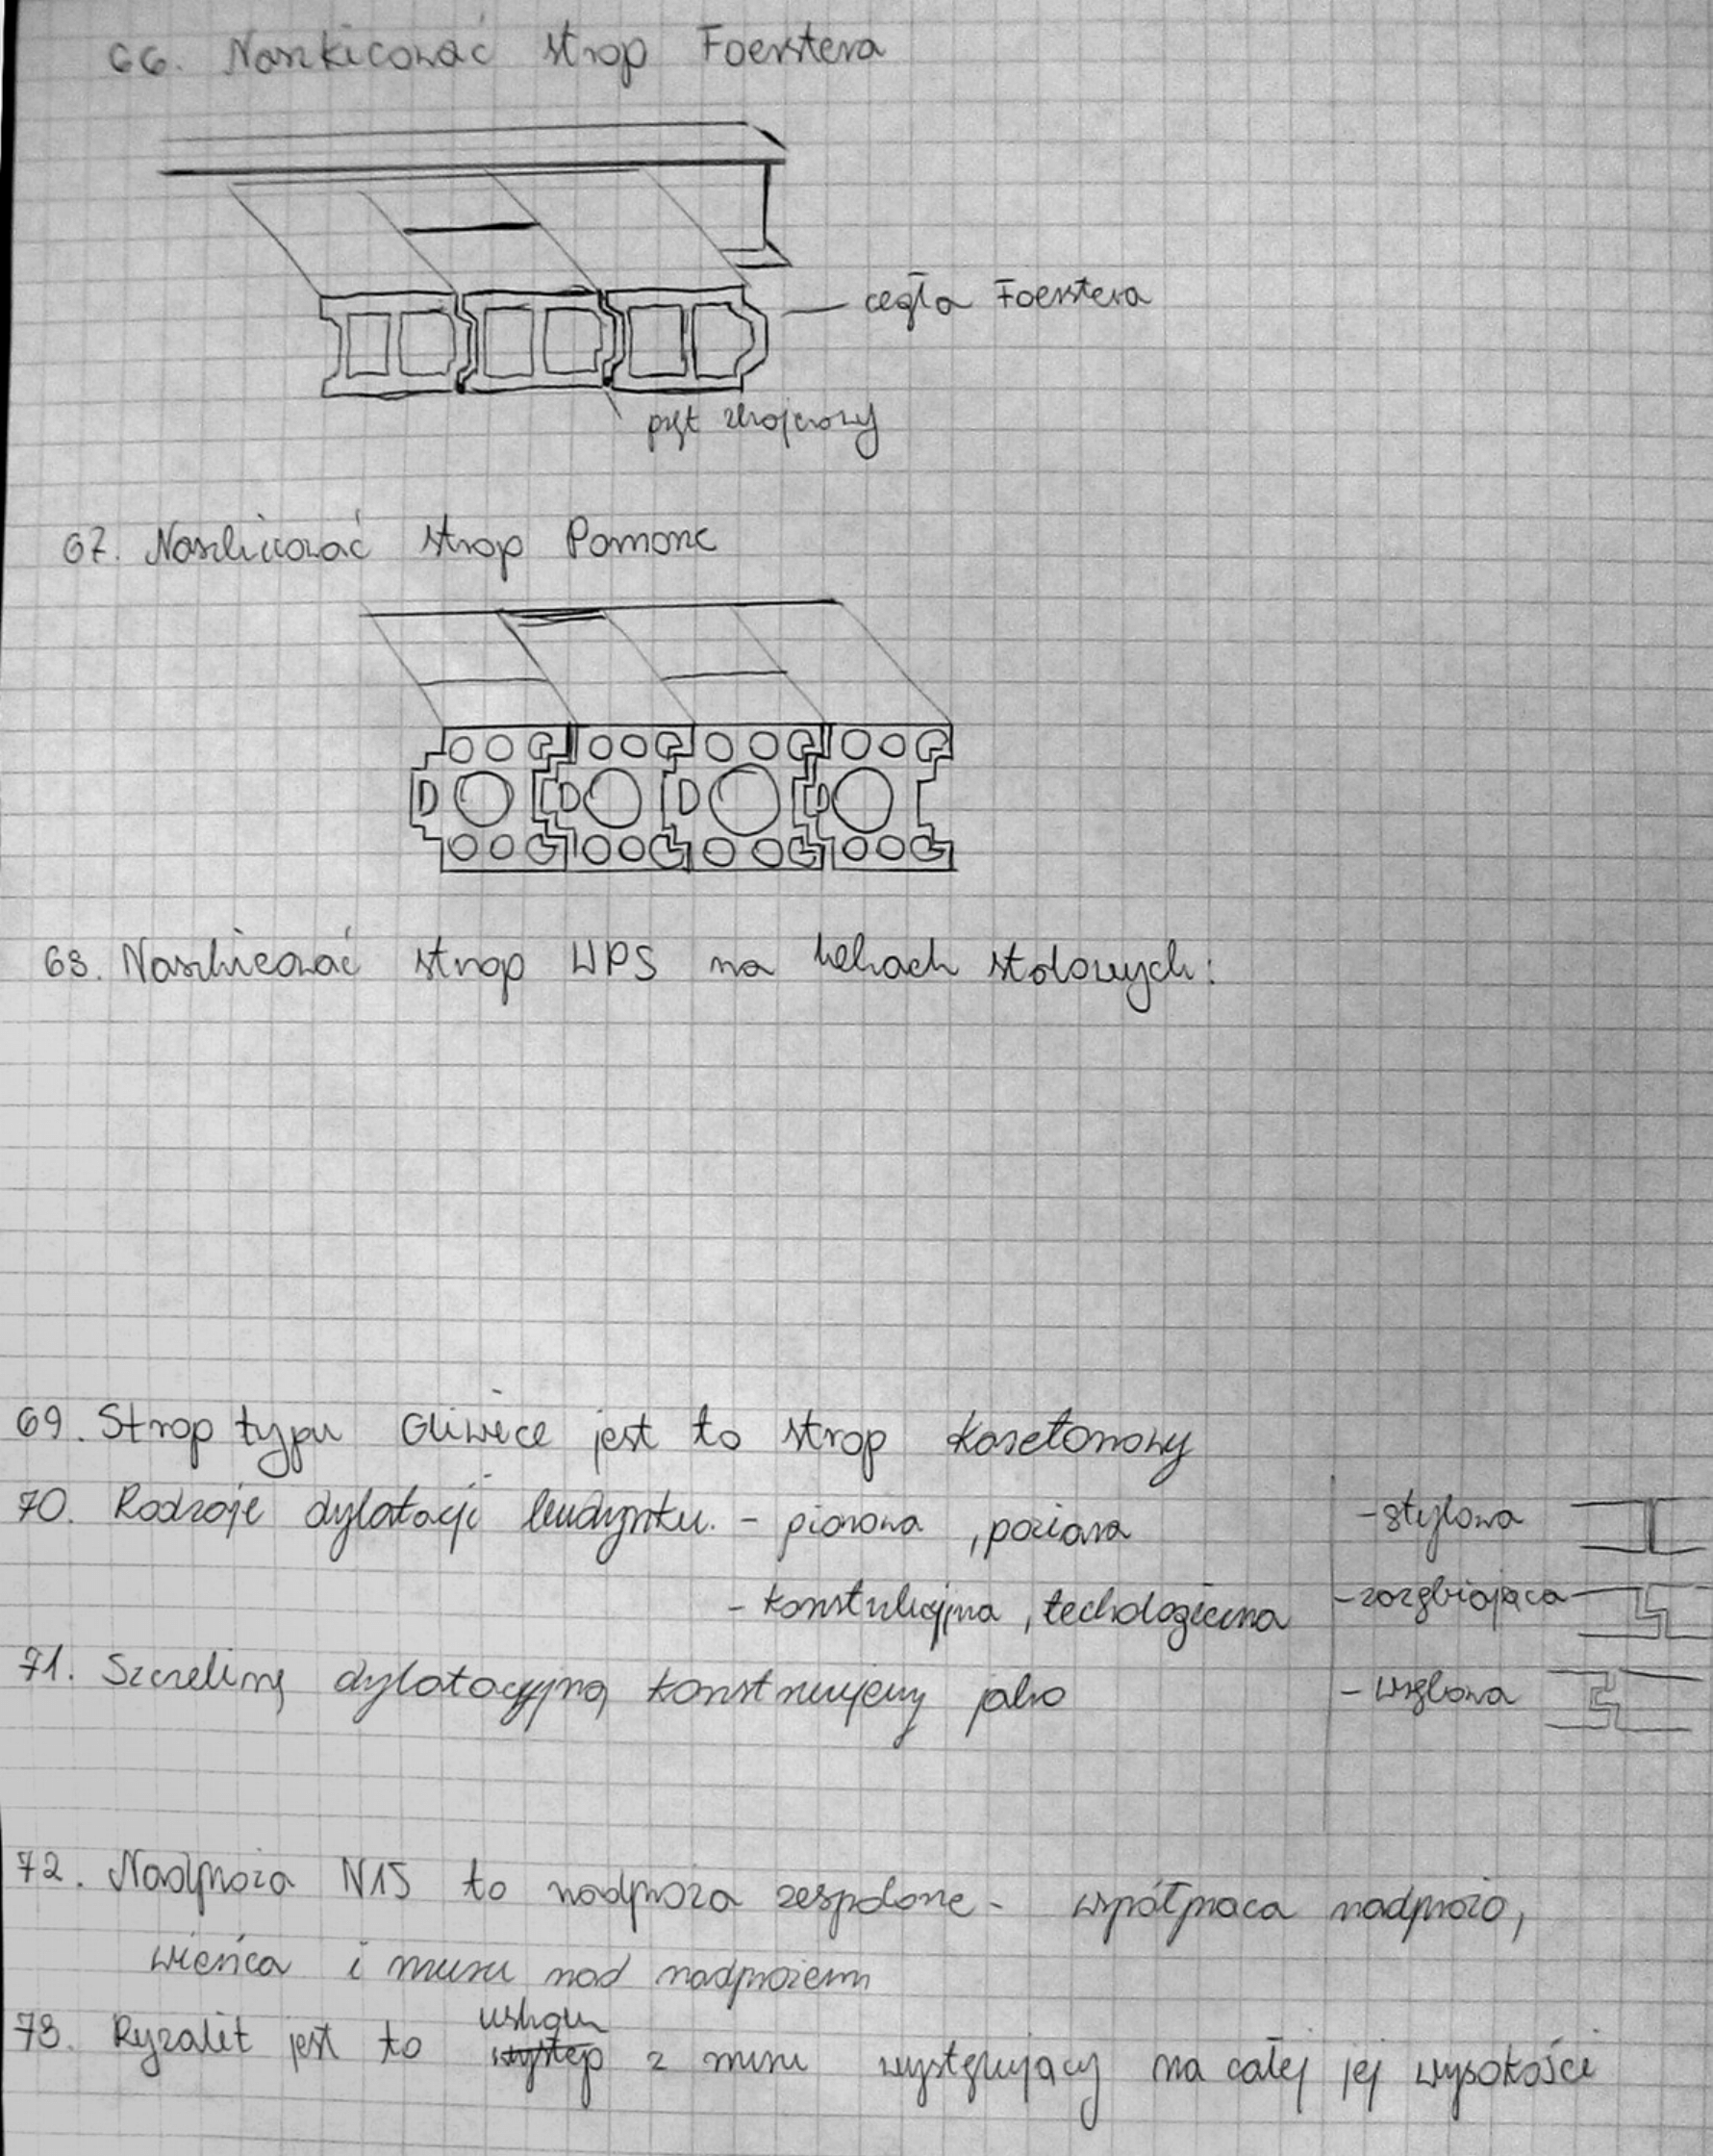 66. Naszkicować strop Foerstera
cegła Foerstera
pręt zbrojeniowy
67. Naszkicować strop Pomorze
68. Naszkicować strop WPS na belkach stalowych:
69. Strop typu Gliwice jest to strop kasetonowy
70. Rodzaje dylatacji budynku. - pionowa, pozioma
- konstrukcyjna, technologiczna
- stykowa
- zazębiająca
- wrębowa
71. Szczelinę dylatacyjną konstruujemy jako
72. Nadproża N15 to nadproża zespolone - współpraca nadproża,
wieńca i muru nad nadprożem
uskok
73. Ryzalit jest to występ z muru występujący na całej jej wysokości